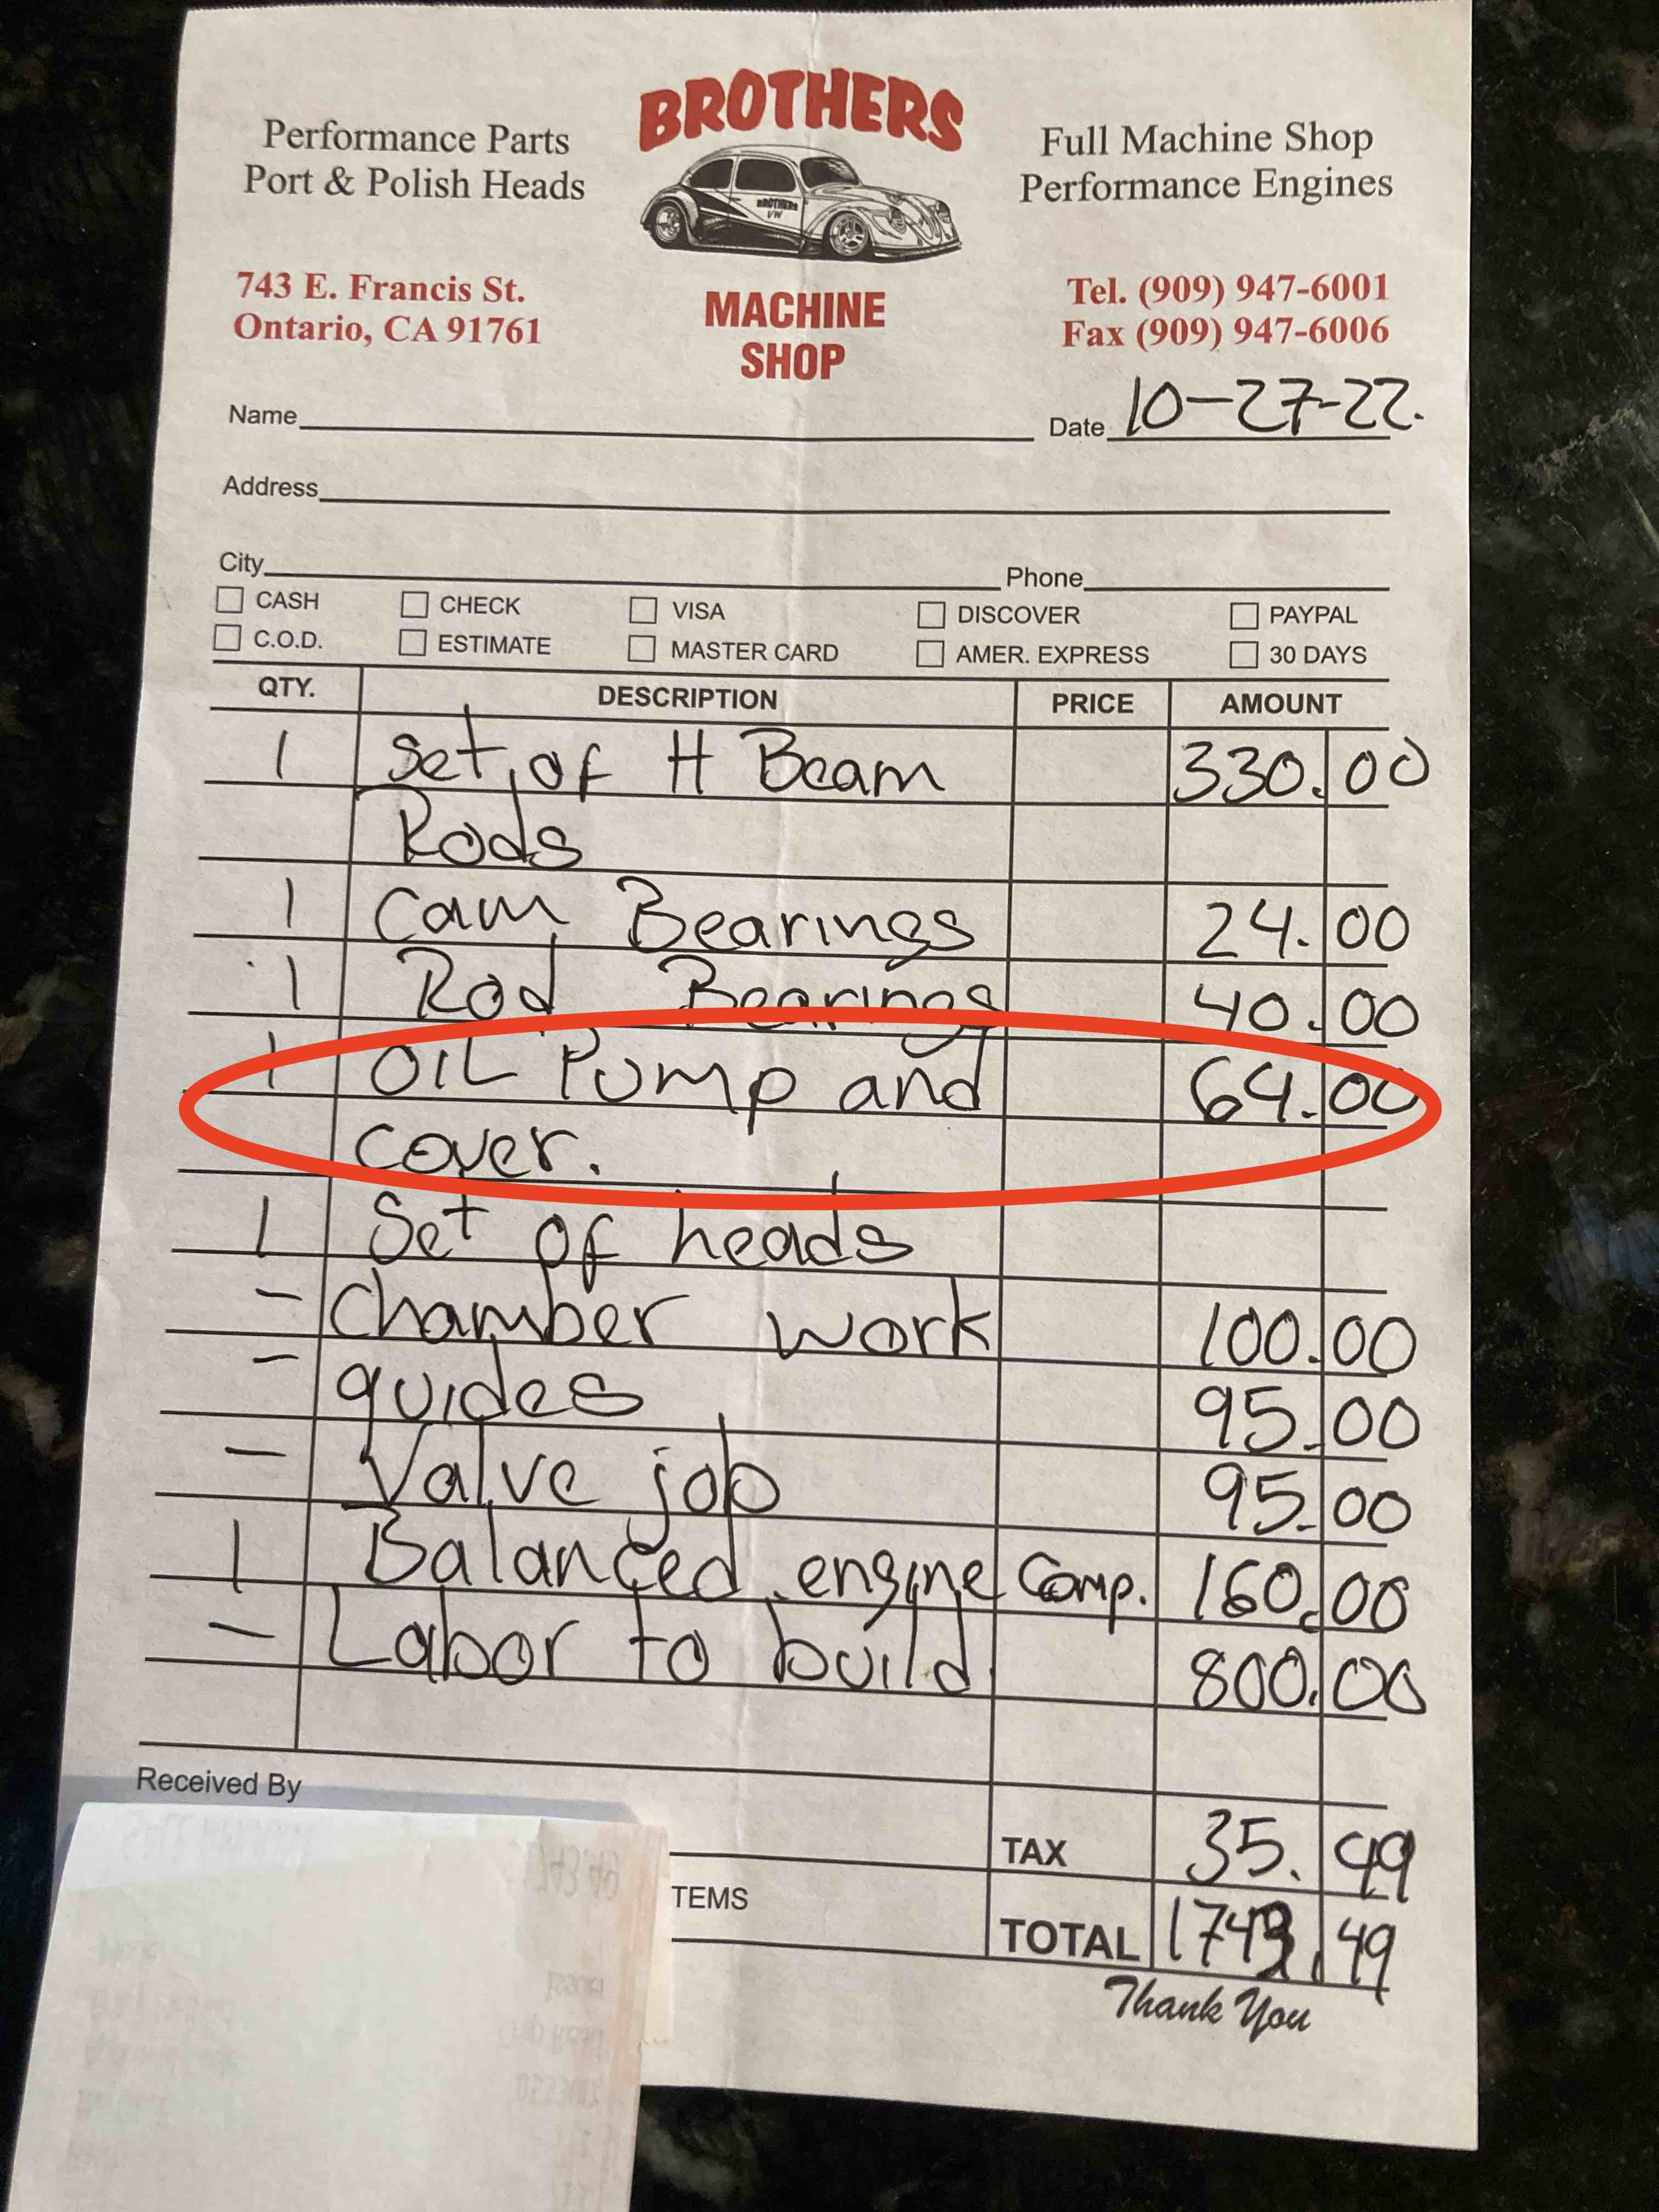 BROTHERS
Performance Parts
Port & Polish Heads
Full Machine Shop
Performance Engines
BROTHERS
VW
743 E. Francis St.
Ontario, CA 91761
MACHINE
SHOP
Tel. (909) 947-6001
Fax (909) 947-6006
Name
Date 10-27-22.
Address
City Phone
CASH CHECK VISA DISCOVER PAYPAL
C.O.D. ESTIMATE MASTER CARD AMER. EXPRESS 30 DAYS
QTY. DESCRIPTION PRICE AMOUNT
1 Set of H Beam 330.00
Rods
1 Cam Bearings 24.00
1 Rod Bearings 40.00
1 OIL Pump and 64.00
cover.
1 Set of heads
- Chamber work 100.00
- guides 95.00
- Valve job 95.00
1 Balanced engine Comp. 160.00
- Labor to build 800.00
Received By
TAX 35.49
TEMS
TOTAL 1743.49
Thank You